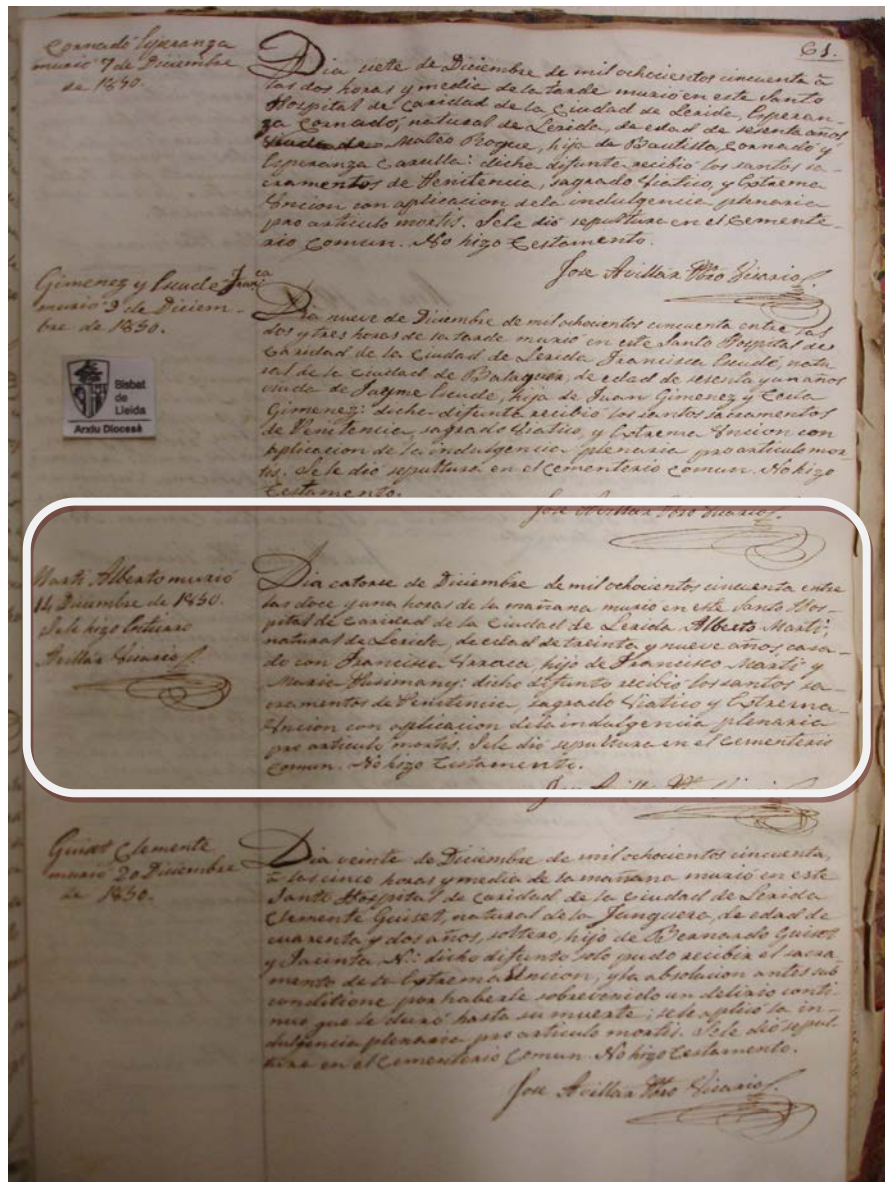 61.
Cornadó Esperanza
murió 7 de Diciembre
de 1850.
Dia siete de Diciembre de mil ochocientos cincuenta à
las dos horas y media de la tarde murió en este Santo
Hospital de Caridad de la Ciudad de Lerida, Esperan-
za Cornadó, natural de Lerida, de edad de sesenta años
viuda de Mateo Roque, hija de Bautista Cornadó y
Esperanza Carulla: dicha difunta recibió los santos sa-
cramentos de Penitencia, sagrado Viatico, y Extrema-
Uncion con aplicacion dela indulgencia plenaria
pro articulo mortis. Sele dió sepultura en el Cemente-
rio Comun. No hizo Testamento.
Jose Avillar Pbro Vicario
Gimenez y Escudé Franca
murió 9 de Diciem-
bre de 1850.
Dia nueve de Diciembre de mil ochocientos cincuenta entre las
dos y tres horas de la tarde murió en este Santo Hospital de
Caridad de la Ciudad de Lerida Francisca Escudé, natu
ral de la Ciudad de Balaguer, de edad de sesenta y un años
viuda de Jayme Escudé, hija de Juan Gimenez y
Gimenez: dicha difunta recibió los santos sacramentos
de Penitencia, sagrado Viatico, y Extrema Uncion con
aplicacion de la indulgencia plenaria pro articulo mor-
tis. Se le dió sepultura en el Cementerio Comun. No hizo
Testamento.
Jose Avillar Pbro Vicario
Bisbat
de
Lleida
Arxiu Diocesà
Martí Alberto murió
14 Diciembre de 1850.
Sele hizo Entierro
Avillar Vicario
Dia catorse de Diciembre de mil ochocientos cincuenta entre
las doce y una horas de la mañana murió en este Santo Hos-
pital de Caridad de la Ciudad de Lerida Alberto Martí,
natural de Lerida, de edad de treinta y nueve años, casa-
do con Francisca, hijo de Francisco Martí y
Maria: dicho difunto recibió los santos sa-
cramentos de Penitencia, sagrado Viatico y Extrema-
Uncion con aplicacion dela indulgencia plenaria
pro articulo mortis. Sele dió sepultura en el Cementerio
Comun. No hizo Testamento.
Jose Avillar Pbro Vicario
Guiset Clemente
murió 20 Diciembre
de 1850.
Dia veinte de Diciembre de mil ochocientos cincuenta,
à las cinco horas y media de la mañana murió en este
Santo Hospital de Caridad de la Ciudad de Lerida
Clemente Guiset, natural de la Junquera, de edad de
cuarenta y dos años, soltero, hijo de Bernardo Guiset
y Jacinta N.: dicho difunto solo pudo recibir el sacra-
mento de la Extrema Uncion, y la absolucion antes sub
conditione por haberle sobrevenido un delirio conti-
nuo que le duró hasta su muerte; sele aplicó la in-
dulgencia plenaria pro articulo mortis. Sele dió sepul-
tura en el Cementerio Comun. No hizo Testamento.
Jose Avillar Pbro Vicario